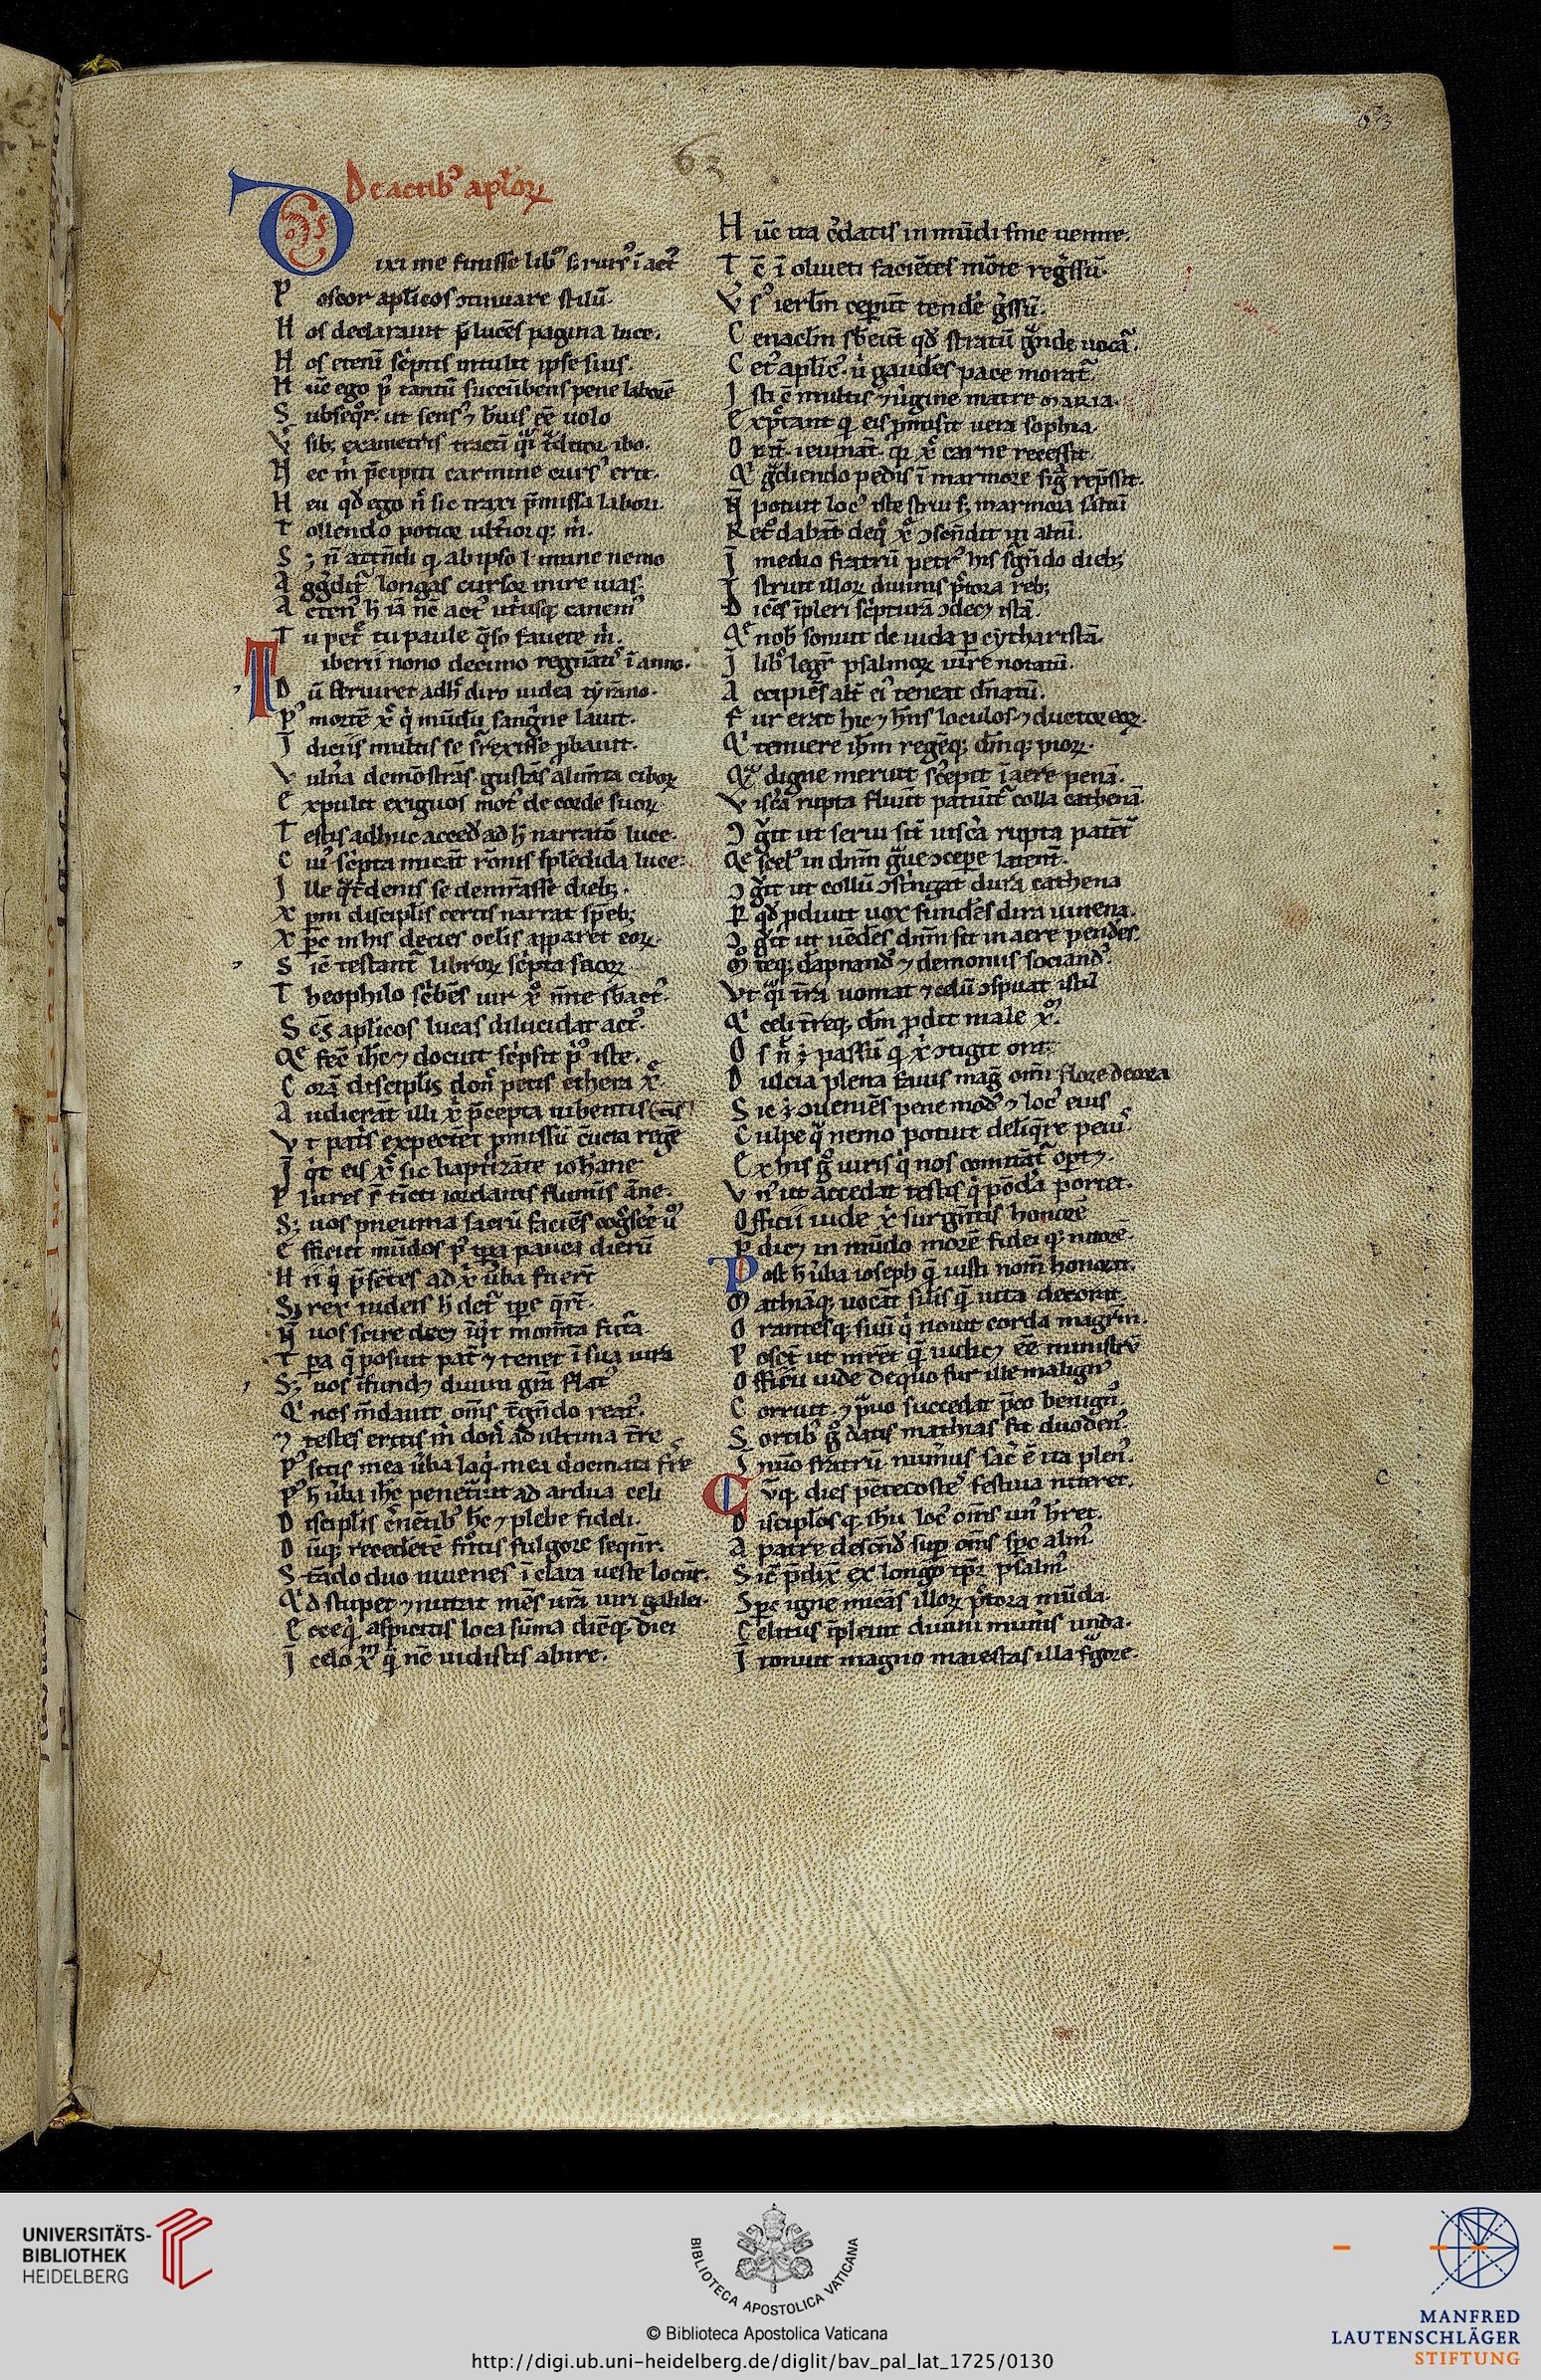 63
63
De actib᾽ apl̄oꝝ
Dixi me finisse lib᾽ ꝫ rurs᾽ ī act᾽
Poscor apl̄icos ↄtinuare stilū.
Hos declarauit p̄lucēs pagina luce.
Hos eteni sc̄ptis intulit ipse suis.
Hūc ego p᾽ tantū succūbens pene laborē
Subseqr̄. ut sens᾽ ⁊ b̄uis eē uolo
sib; exametris tractī ibo.
Hec m̄ p̄cipiti carmine curs᾽ erit.
Heu qd̄ ego n̄ sic traxi p̄missa labori.
Tollendo potior ult̄iorq; m̄.
S; n̄ attn̄di q ab ipso l imune nemo
Aggd̄it᾽ longas cursor inire uias.
Acten᾽ h̄ iā nc̄ act᾽ ut̄usq; canem᾽
Tu petr̄ tu paule q̄so fauete m̄.
Tiberii nono decimo regnāt᾽ ī anno.
Dū seruiret adh᾽ diro iudea tyr̄ano.
P᾽ mortē xp̄ q᾽ mūdū sanḡne lauit.
Ī dieiis multis se sr̄exisse ꝓbauit.
Vuln̄a demōstrās. gustās alim̄ta ciboꝝ
Expulit exiguos mot᾽ de corde suoꝝ
Testis adhuc acced̄ ad h̄ narratō luce.
Cui᾽ sc̄pta micāt rōnis splēdida luce.
Ille q̄t̄denis se demr̄asse dieb;.
xp̄m discipl̄is certis narrat sp̄eb;
xp̄c in his decies oclis apparet eoꝝ
Sic testant᾽ libroꝝ sc̄pta sacoꝝ
Theophilo sc̄bēs uir
Scs̄ apl̄icos lucas dilucidat act᾽.
Qe fec̄ ih̄c ⁊ docuit sc̄psit p᾽ iste.
Corā discipl̄is don̄ petis ethera xp̄
Audierāt illi xp̄ p̄cepta iubentis
Vt patīs expectēt ꝓmissū cūcta regē
Īq̄t eis xp̄ sic baptizāte iohāne
Plures st̄ tīcti iordanis flumīs āne.
S; uos pneuma sacrū faciēs
Efficiet mūdos p᾽ ista pauca dierū
Hn̄ q᾽ p̄sētes ad xp̄ ūba fuer̄t
S; rex iudeis h̄ det᾽ q̄rt̄.
N̄ uos scire decꝫ īq̄t mom̄ta fut̄a
Tpa q̄ posuit pat̄ ⁊ tenet ī sua iura
S; uos īfundꝫ diuini gr̄a flat᾽
Q᾽ nos m̄dauit om̄s t̄gn̄do reat᾽.
⁊ testes eritis m̄ don̄ ad ultima t̄re
P᾽ istis mea ūba loq̄. mea dōcmata
P᾽ h̄ ūba ih̄c penet̄uit ad ardua celi
Discipl̄is c̄nētib᾽ h̄c ⁊ plebe fideli.
Dūq; recedētē fr̄ntis fulgore seqn̄r.
Stādo duo iuuenes ī clara ueste locūt̄.
Qd̄ stupet ⁊ nutat mēs ur̄a uiri galilei.
Ecceq᾽ aspicitis loca sūma diēq; diei
Ī celo xp̄m q̄ nc̄ uidistis abire.
Hūc ita c̄datis in mūdi fine uenire.
Tc̄ ī oliueti faciētes mōte reg̃ssū.
V᾽s᾽ ierl̄m ceperūt tend̄e g̃ssū.
Cenacl̄m sb̄eiūt qd̄ stratū g̃nde uocāt.
Cet᾽ apl̄ic᾽. ū gaudēs pace morat᾽
Isti cū multis ⁊ uirgine matre maria.
Expectant q eis ꝓmisit uera sophia.
Orāt. ieiunāt. q̄r xp̄ carne recessit.
Q᾽ g̃diendo pedis ī marmore sig̃ rep̄ssit.
N̄ potuit loc᾽ iste strui ꝫ marmora
Ret᾽ dabāt deq᾽ xp̄ ↄscend̄it in altū.
Ī medio fratrū petr᾽ his sg̃ndo dieb;
Istruit illoꝝ diuinis pc̄tora reb;
Dicēs īpleri sc̄pturā ↄdecꝫ istā.
Qe nob̄ sonuit de iuda ꝑ cytharistā.
Ī lib᾽ legr̄ psalmoꝝ uire notatū.
Accipiēs alt᾽ ei᾽ teneat dn̄atū.
Fur erat hic ⁊ h̄ns loculos. ⁊ ductor eoꝝ.
Q᾽ tenuere ih̄m regēq; dn̄mq; pioꝝ.
Qa digne meruit sc̄epit ī aere penā.
Viscā rupta fluūt patiūt᾽ colla cathenā.
ↄg̃it ut serui sit̄ uiscā rupta patēt᾽
Qe scel᾽ in dn̄m g̃ue ↄcepe latent̄.
ↄg̃it ut collū ↄstringat dura cathena
P qd̄ ꝓdiuit uox fundēs dira uenena.
ↄg̃it ut uēdēs dn̄m sit in aere pendēs.
Mōteq; dapnand᾽ ⁊ demoniis sociand᾽.
Vt q̄i t̄ra uomat ⁊ celū ↄspuat istū
Q᾽ celi t̄req; dn̄m ꝓdit male xp̄.
Os n̄ ē passū q xp̄ ↄtigit ora.
Dulcia plena fauis mag̃ omi flore decora
Sic ē ↄueniēs pene mod᾽ ⁊ loc᾽ eius
Culpe q̄ nemo potuit deliq̄re pei᾽
Ex his g᾽ uiris q᾽ nos comitāt᾽ oportꝫ.
Vn᾽ ut accedat testis q᾽ pōd̄a portet.
Officii iude xp̄ surgn̄tis honorē
P᾽dicꝫ in mūdo morē fidei q; nitorē.
Post h̄ ūba ioseph q̄ iusti nom̄ honorat.
Mathiāq; uocāt sil̄is q̄ uita decorat.
Orantesq; suū q᾽ nouit corda magr̄m.
Poscūt ut mr̄et q̄ iudicꝫ eē ministrū
Officii iude de quo fur ille malign᾽
Corruit. ⁊ p̄uo succedat p̄co benign᾽
Sortib᾽ g᾽ datis mathias fit duoden᾽
Ī nūo fratrū. num̄us sac̄ ē ita plen᾽.
Cūq; dies pētecostes festiua niteret.
Discipl̄osq; ih̄u loc᾽ om̄s un᾽ hr̄et.
A patre descēd̄ sup om̄s sp̄c alm᾽
Sic p̄dix̄ ex longo tp̄r psalm᾽
Sp̄c igne micās illoꝝ pc̄tora mūda.
Celitus īpleuit diuini mun̄is unda.
Ītonuit magno maiestas illa fg̃ore.
c
UNIVERSITÄTS-
BIBLIOTHEK
HEIDELBERG
BIBLIOTECA APOSTOLICA VATICANA
© Biblioteca Apostolica Vaticana
http://digi.ub.uni-heidelberg.de/diglit/bav_pal_lat_1725/0130
MANFRED
LAUTENSCHLÄGER
STIFTUNG